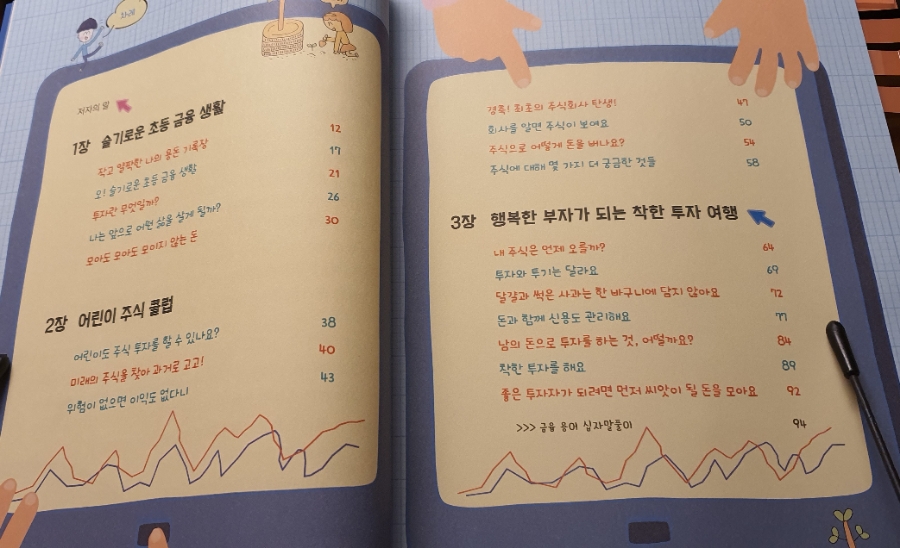 차례
저자의 말
1장 슬기로운 초등 금융 생활
작고 얄팍한 나의 용돈 기록장 12
오! 슬기로운 초등 금융 생활 17
투자란 무엇일까? 21
나는 앞으로 어떤 삶을 살게 될까? 26
모아도 모아도 모이지 않는 돈 30
2장 어린이 주식 클럽
어린이도 주식 투자를 할 수 있나요? 38
미래의 주식을 찾아 과거로 고고! 40
위험이 없으면 이익도 없다니 43
경축! 최초의 주식회사 탄생! 47
회사를 알면 주식이 보여요 50
주식으로 어떻게 돈을 버나요? 54
주식에 대해 몇 가지 더 궁금한 것들 58
3장 행복한 부자가 되는 착한 투자 여행
내 주식은 언제 오를까? 64
투자와 투기는 달라요 69
달걀과 썩은 사과는 한 바구니에 담지 않아요 72
돈과 함께 신용도 관리해요 77
남의 돈으로 투자를 하는 것, 어떨까요? 84
착한 투자를 해요 89
좋은 투자자가 되려면 먼저 씨앗이 될 돈을 모아요 92
>>> 금융 용어 십자말풀이 94